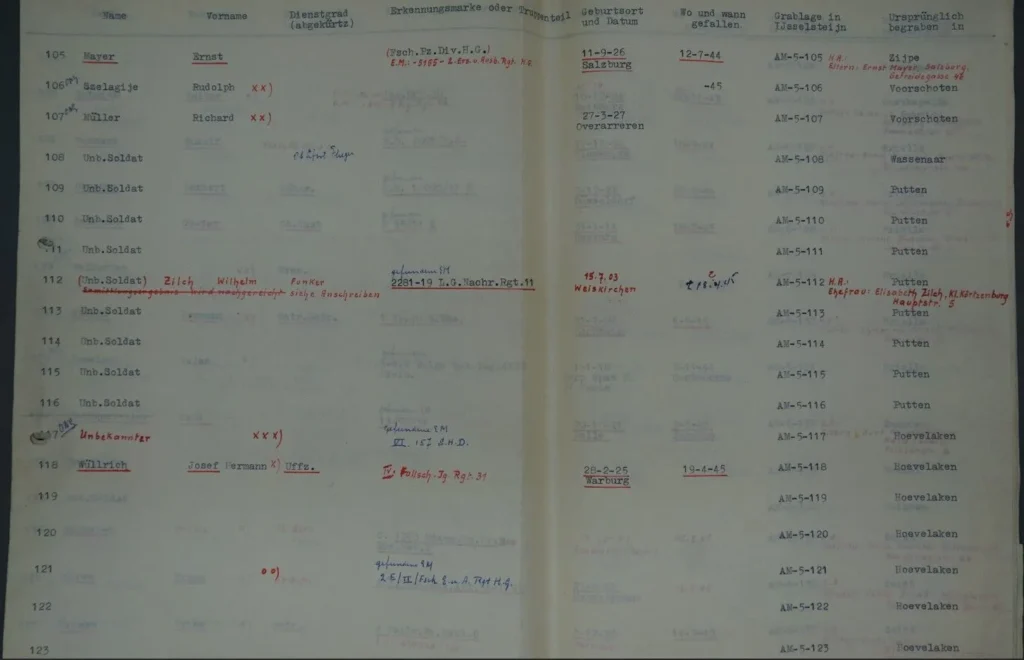 Name Vorname Dienstgrad (abgekürtz) Erkennungsmarke oder Truppenteil Geburtsort und Datum Wo und wann gefallen Grablage in IJsselsteijn Ursprünglich begraben in
105 Mayer Ernst (Fsch.Pz.Div.H.G.) 11-9-26 12-7-44 AM-5-105 Zijpe
E.M.: -5155- 2.Ers.u.Ausb.Rgt. H.G. Salzburg H.A.: Eltern: Ernst Mayer, Salzburg, Getreidegasse
106 Szelagije Rudolph xx) -45 AM-5-106 Voorschoten
107 Müller Richard xx) 27-3-27 AM-5-107 Voorschoten
Overarreren
108 Unb.Soldat AM-5-108 Wassenaar
109 Unb.Soldat AM-5-109 Putten
110 Unb.Soldat AM-5-110 Putten
111 Unb.Soldat AM-5-111 Putten
gefunden EM
112 (Unb.Soldat) Zilch Wilhelm Funker 2281-19 L.G.Nachr.Rgt.11 15.7.03 AM-5-112 Putten
Ermittlungsergebnis wird nachgereicht siehe Anschreiben Weiskirchen H.A.: Ehefrau: Elisabeth Zilch, Kl. Hauptstr. 5
113 Unb.Soldat AM-5-113 Putten
114 Unb.Soldat AM-5-114 Putten
115 Unb.Soldat AM-5-115 Putten
116 Unb.Soldat AM-5-116 Putten
117 Unbekannter xxx) gefunden EM AM-5-117 Hoevelaken
118 Wüllrich Josef Hermann x) Uffz. IV. Fallsch.Jg.Rgt.31 28-2-25 19-4-45 AM-5-118 Hoevelaken
Warburg
119 AM-5-119 Hoevelaken
120 AM-5-120 Hoevelaken
121 oo) gefunden EM AM-5-121 Hoevelaken
122 AM-5-122 Hoevelaken
123 AM-5-123 Hoevelaken